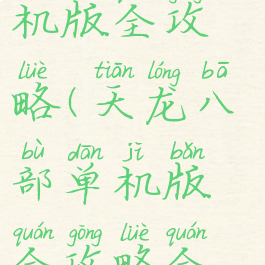 机版全攻
lüè tiān lóng bā
略(天龙八
bù dān jī bǎn
部单机版
quán gōng lüè quán
全攻略全